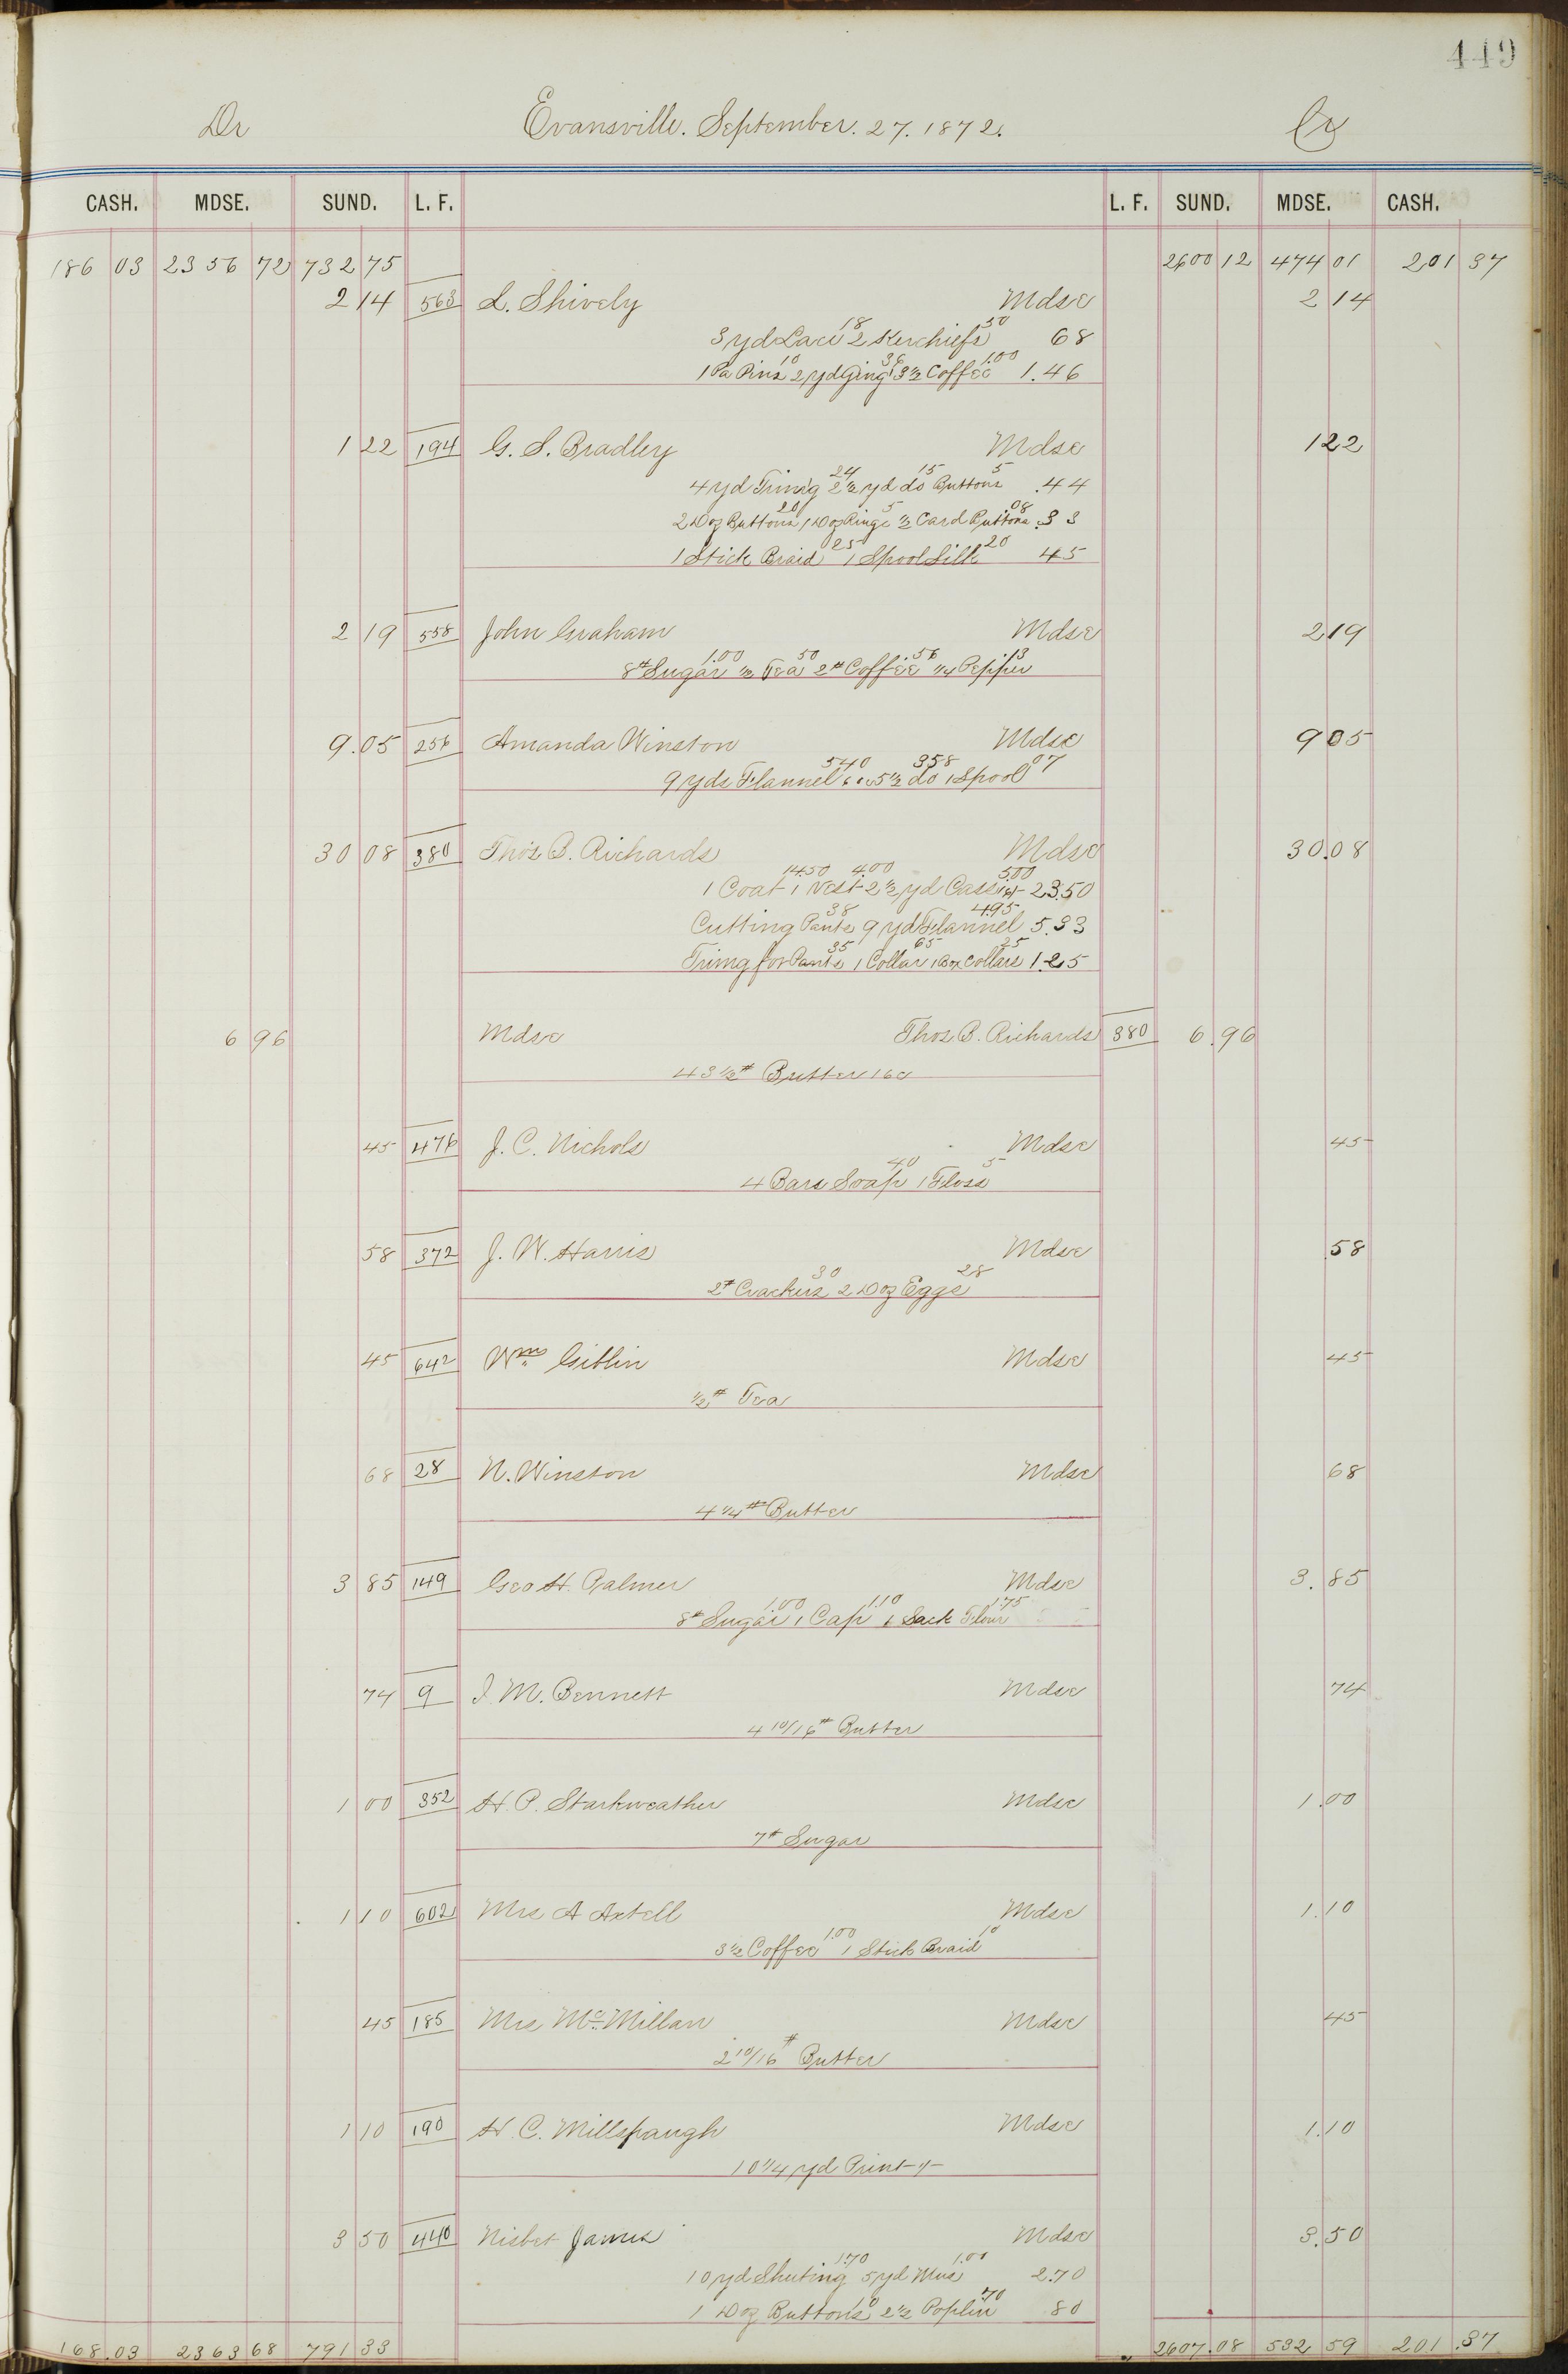 449
Dr Evansville. September. 27. 1872. Cr
CASH. MDSE. SUND. L. F. L. F. SUND. MDSE. CASH.
186 03 2356 72 732 75 2600 12 474 01 201 37
2 14 563 L. Shively Mdse 2 14
18 50
3 yd Lace 2 Kerchiefs 68
10 36 1.00
1 Pa Pins 2 yd Ging 3 1/2 Coffee 1.46
1 22 194 G. S. Bradley Mdse 1 22
24 15 5
4 yd Trimg 2 1/2 yd do Buttons .44
20 5 08
2 Doz Buttons 1 Doz Rings 1/2 Card Buttons .33
25 20
1 Stick Braid 1 Spool Silk 45
2 19 558 John Graham Mdse 2 19
1.00 50 .56 13
8# Sugar 1/2 Tea 2# Coffee 1/4 Pepper
9.05 256 Amanda Winston Mdse 9 05
540 358 07
9 yds Flannel 60c 5 1/2 do 1 Spool
30 08 380 Thos B. Richards Mdse 30.08
14.50 4.00 5.00
1 Coat 1 Vest 2 1/2 yd 23.50
38 4.95
Cutting Pants 9 yd Flannel 5.33
35 65 25
Trimg for Pants 1 Collar 1 Box Collars 1.25
6 96 Mdse Thos B. Richards 380 6.96
43 1/2# Butter 16c
45 476 J. C. Nichols Mdse 45
40 5
4 Bars Soap 1 Floss
58 372 J. W. Harris Mdse .58
30 28
2# Crackers 2 Doz Eggs
45 642 Wm Giblin Mdse 45
1/2# Tea
68 28 N. Winston Mdse 68
4 1/4# Butter
3 85 149 Geo H. Palmer Mdse 3.85
1.00 1.10 1.75
8# Sugar 1 Cap 1 Sack Flour
74 9 I. M. Bennett Mdse 74
4 10/16# Butter
1 00 352 H. P. Starkweather Mdse 1.00
7# Sugar
1 10 602 Mrs A Axtell Mdse 1.10
1.00 10
3 1/2 Coffee 1 Stick Braid
45 185 Mrs Mc Millan Mdse 45
2 10/16# Butter
1 10 190 H. C. Millspaugh Mdse 1.10
10 1/4 yd Print
3 50 440 Nisbet James Mdse 3.50
1.70 1.00
10 yd Sheeting 5 yd Mus 2.70
10 70
1 Doz Buttons 2 1/2 Poplin 80
168.03 2363 68 791 33 2607.08 532 59 201.37